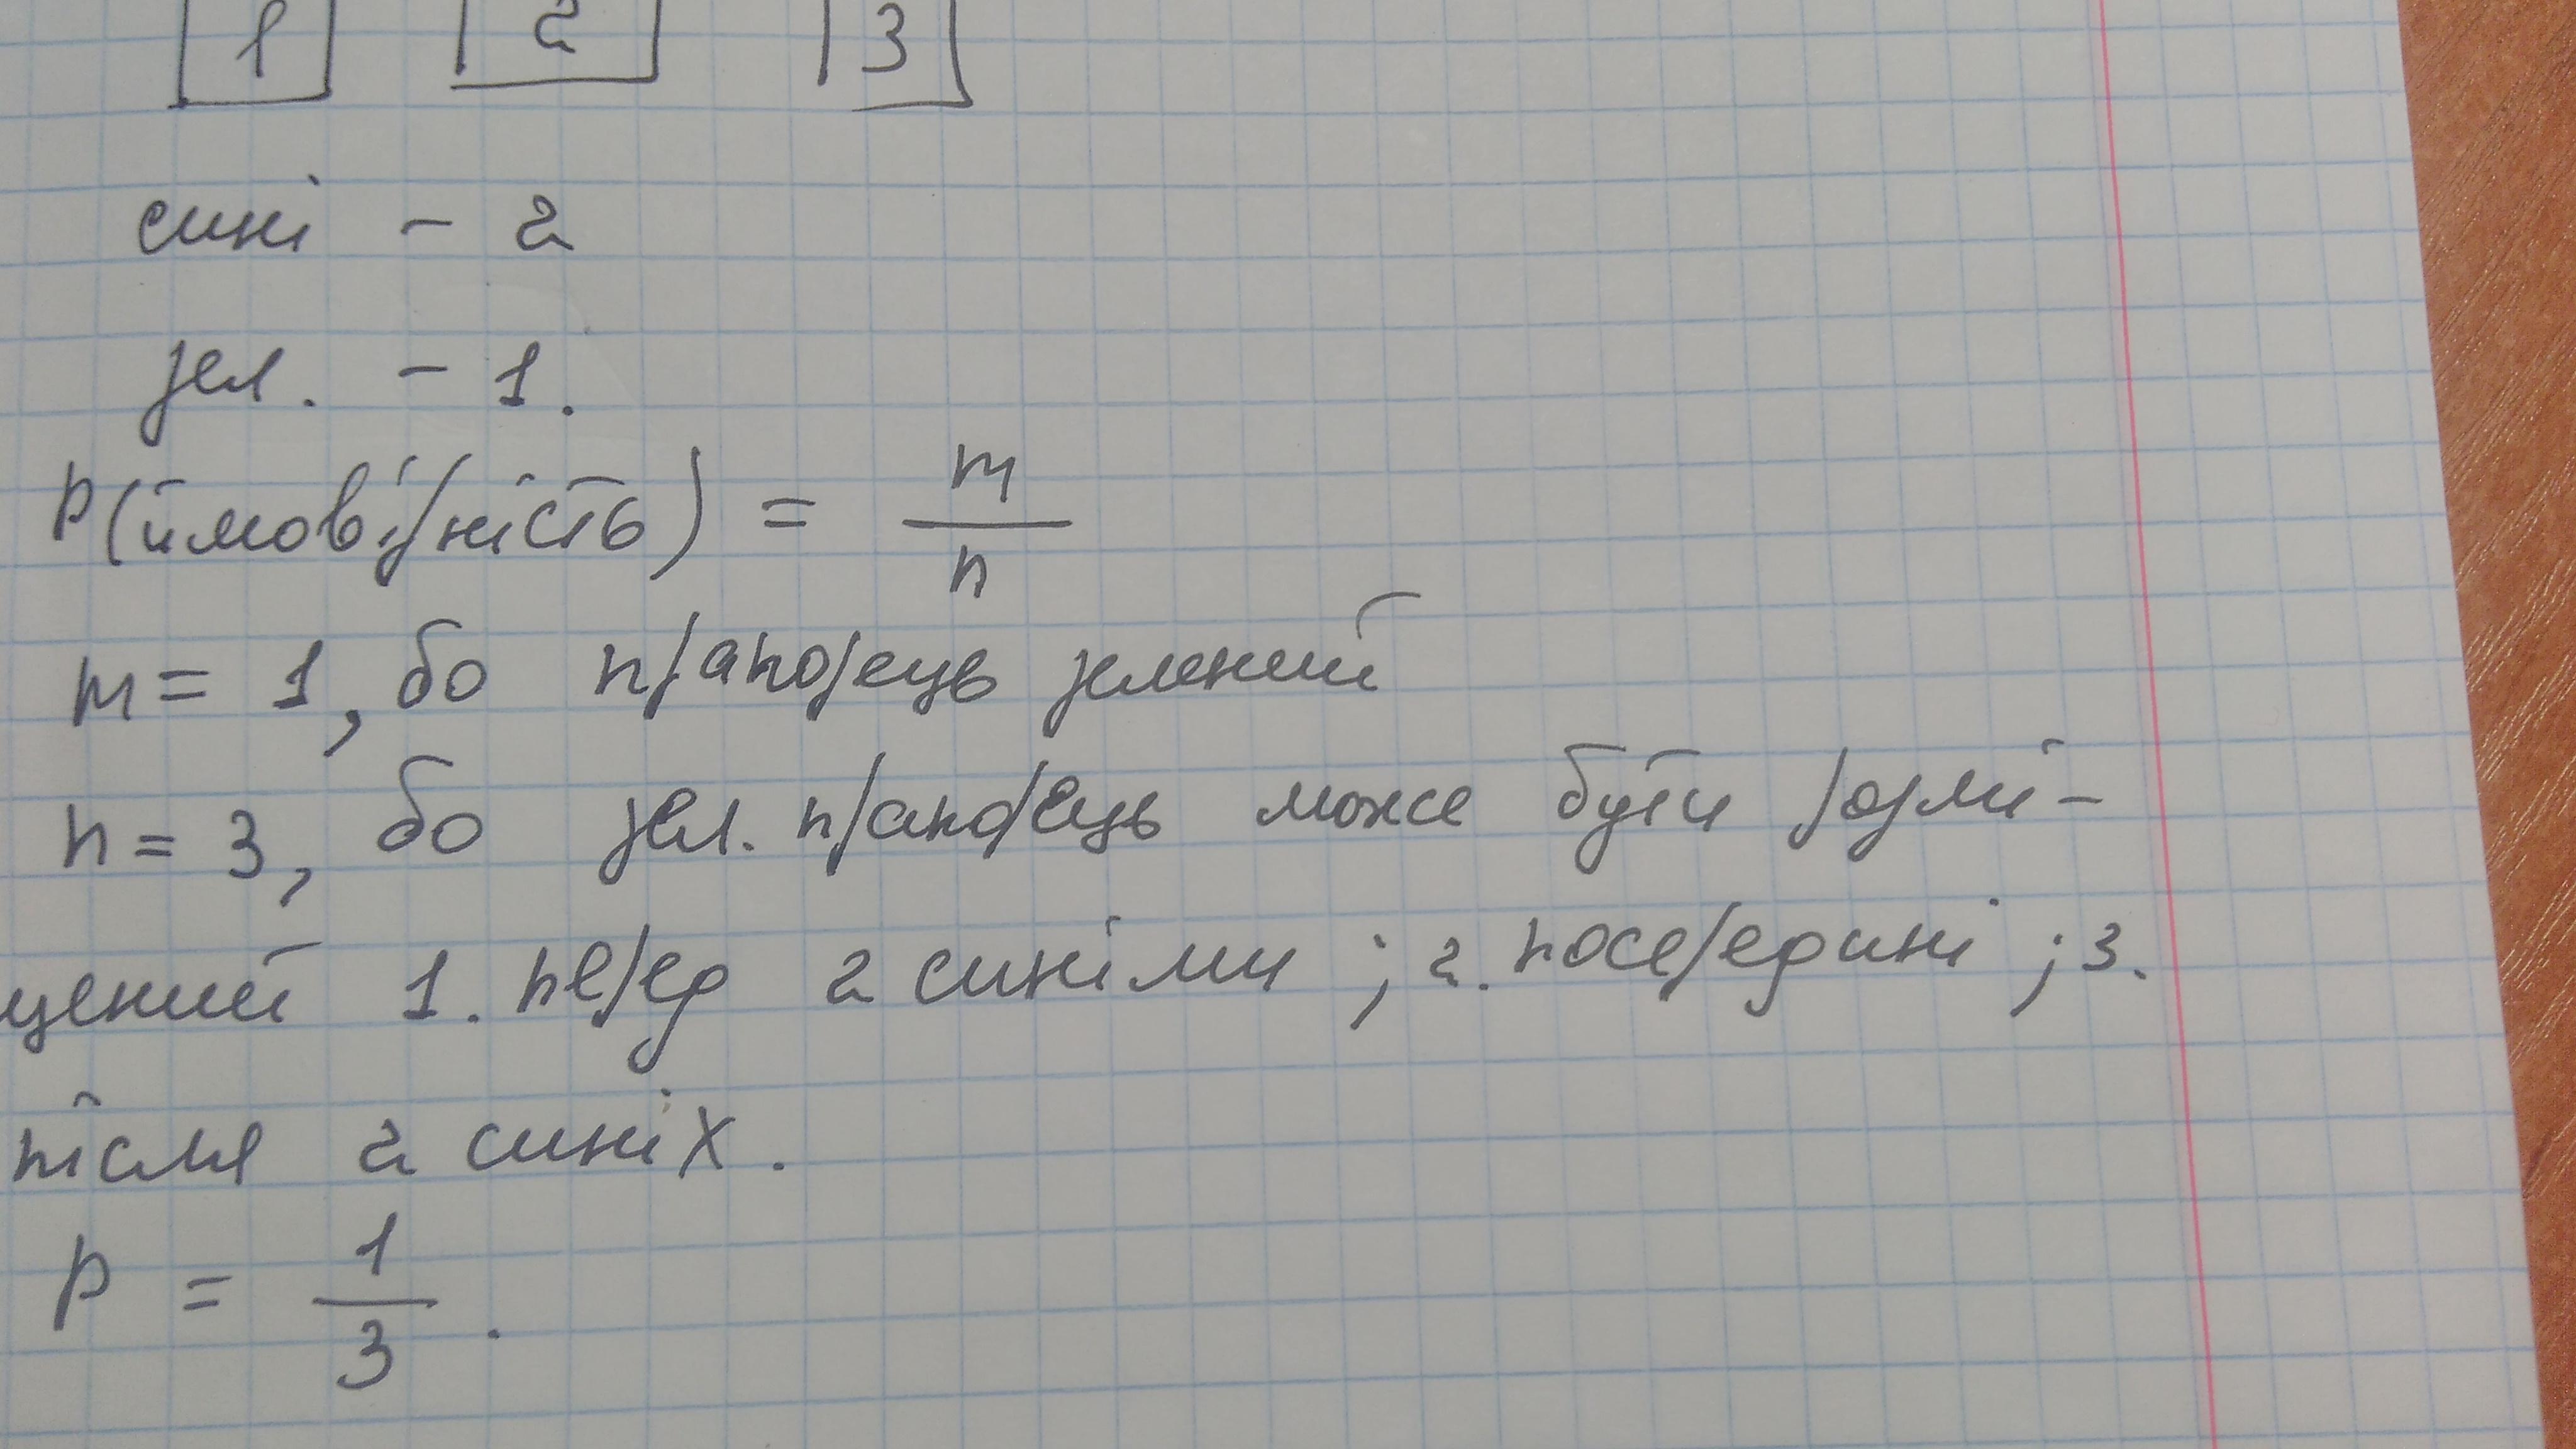 1 2 3
сині - 2
зел. - 1.
P(ймовірність) = m/n
m = 1, бо прапорець зелений
n = 3, бо зел. прапорець може бути розмі-
щений 1. перед 2 синіми ; 2. посередині ; 3.
після 2 синіх.
P = 1/3 .